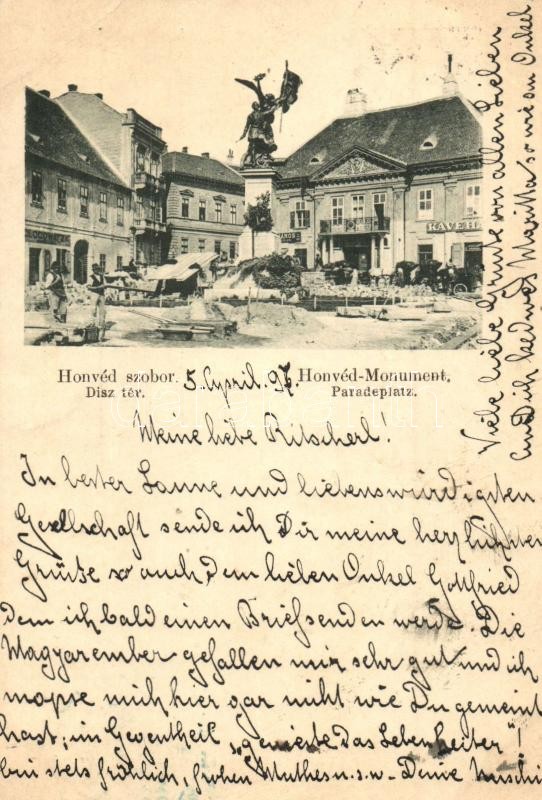 KAVEH
Honvéd szobor.
Disz tér.
5 April. 97.
Honvéd-Monument.
Paradeplatz.
Meine liebe Ritscherl!
In bester Laune und liebenswürdigsten
Gesellschaft sende ich Dir meine herzlichsten
Grüße so auch dem lieben Onkel Gottfried
dem ich bald einen Brief senden werde. Die
Magyarember gefallen mir sehr gut und ich
mopse mich hier gar nicht wie Du gemeint
hast; im Gegentheil "genieße das Leben heiter"!
bin stets fröhlich, frohen Muthes u.s.w. Deine
Viele liebe Grüße von allen Lieben
und ich sowie an Onkel